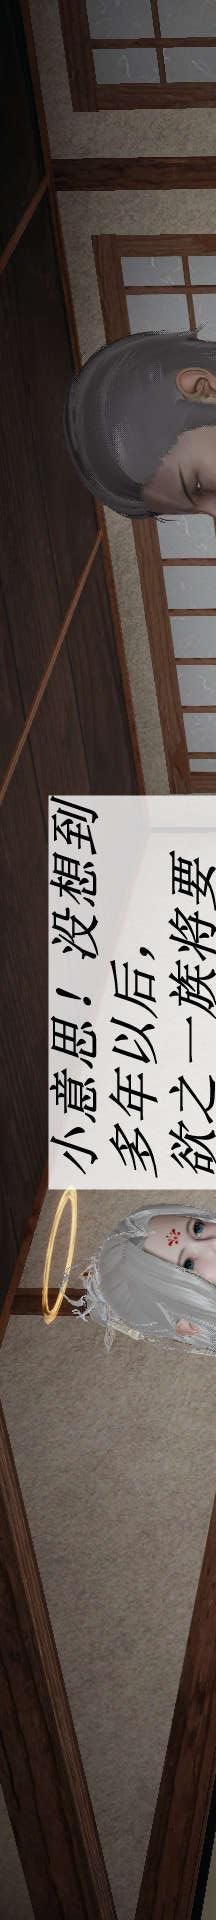 小意思！没想到
多年以后，
欲之一族将要